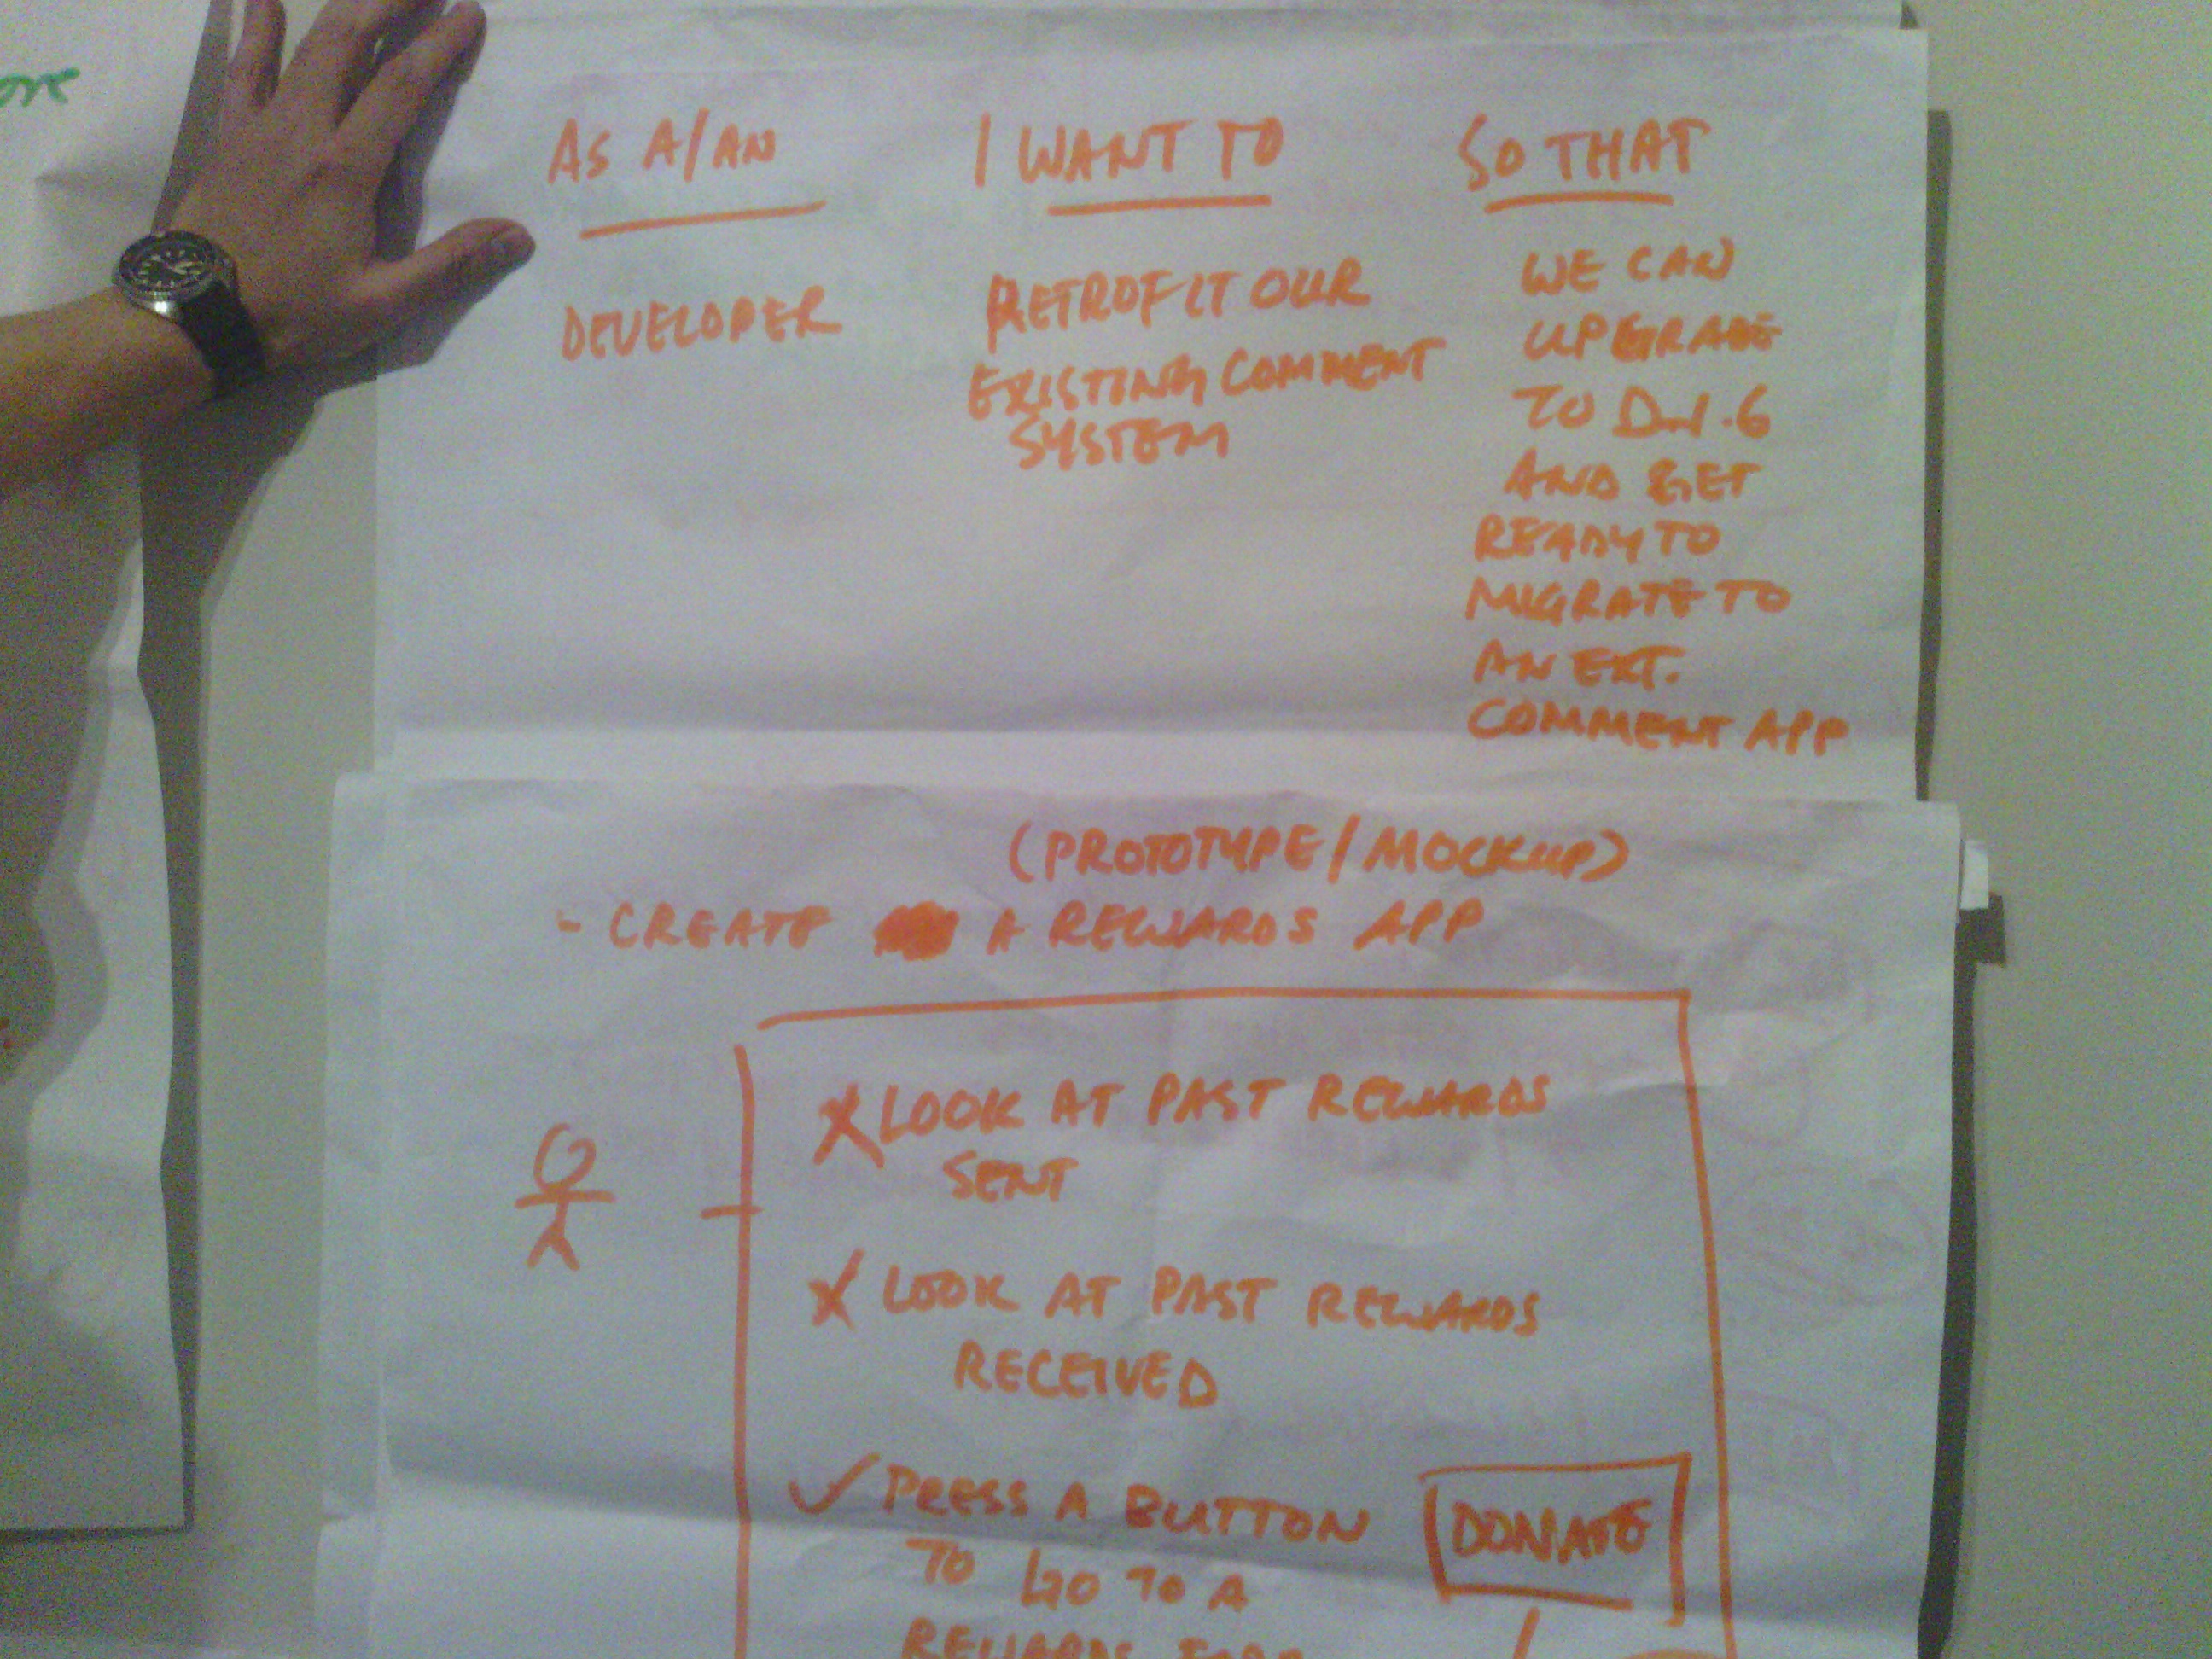 AS A/AN
I WANT TO
SO THAT
DEVELOPER
RETROFIT OUR
EXISTING COMMENT
SYSTEM
WE CAN
UPGRADE
TO DJ1.6
AND GET
READY TO
MIGRATE TO
AN EXT.
COMMENT APP
(PROTOTYPE/MOCKUP)
- CREATE A REWARDS APP
X LOOK AT PAST REWARDS
SENT
X LOOK AT PAST REWARDS
RECEIVED
✓ PRESS A BUTTON
TO GO TO A
DONATE
REWARDS